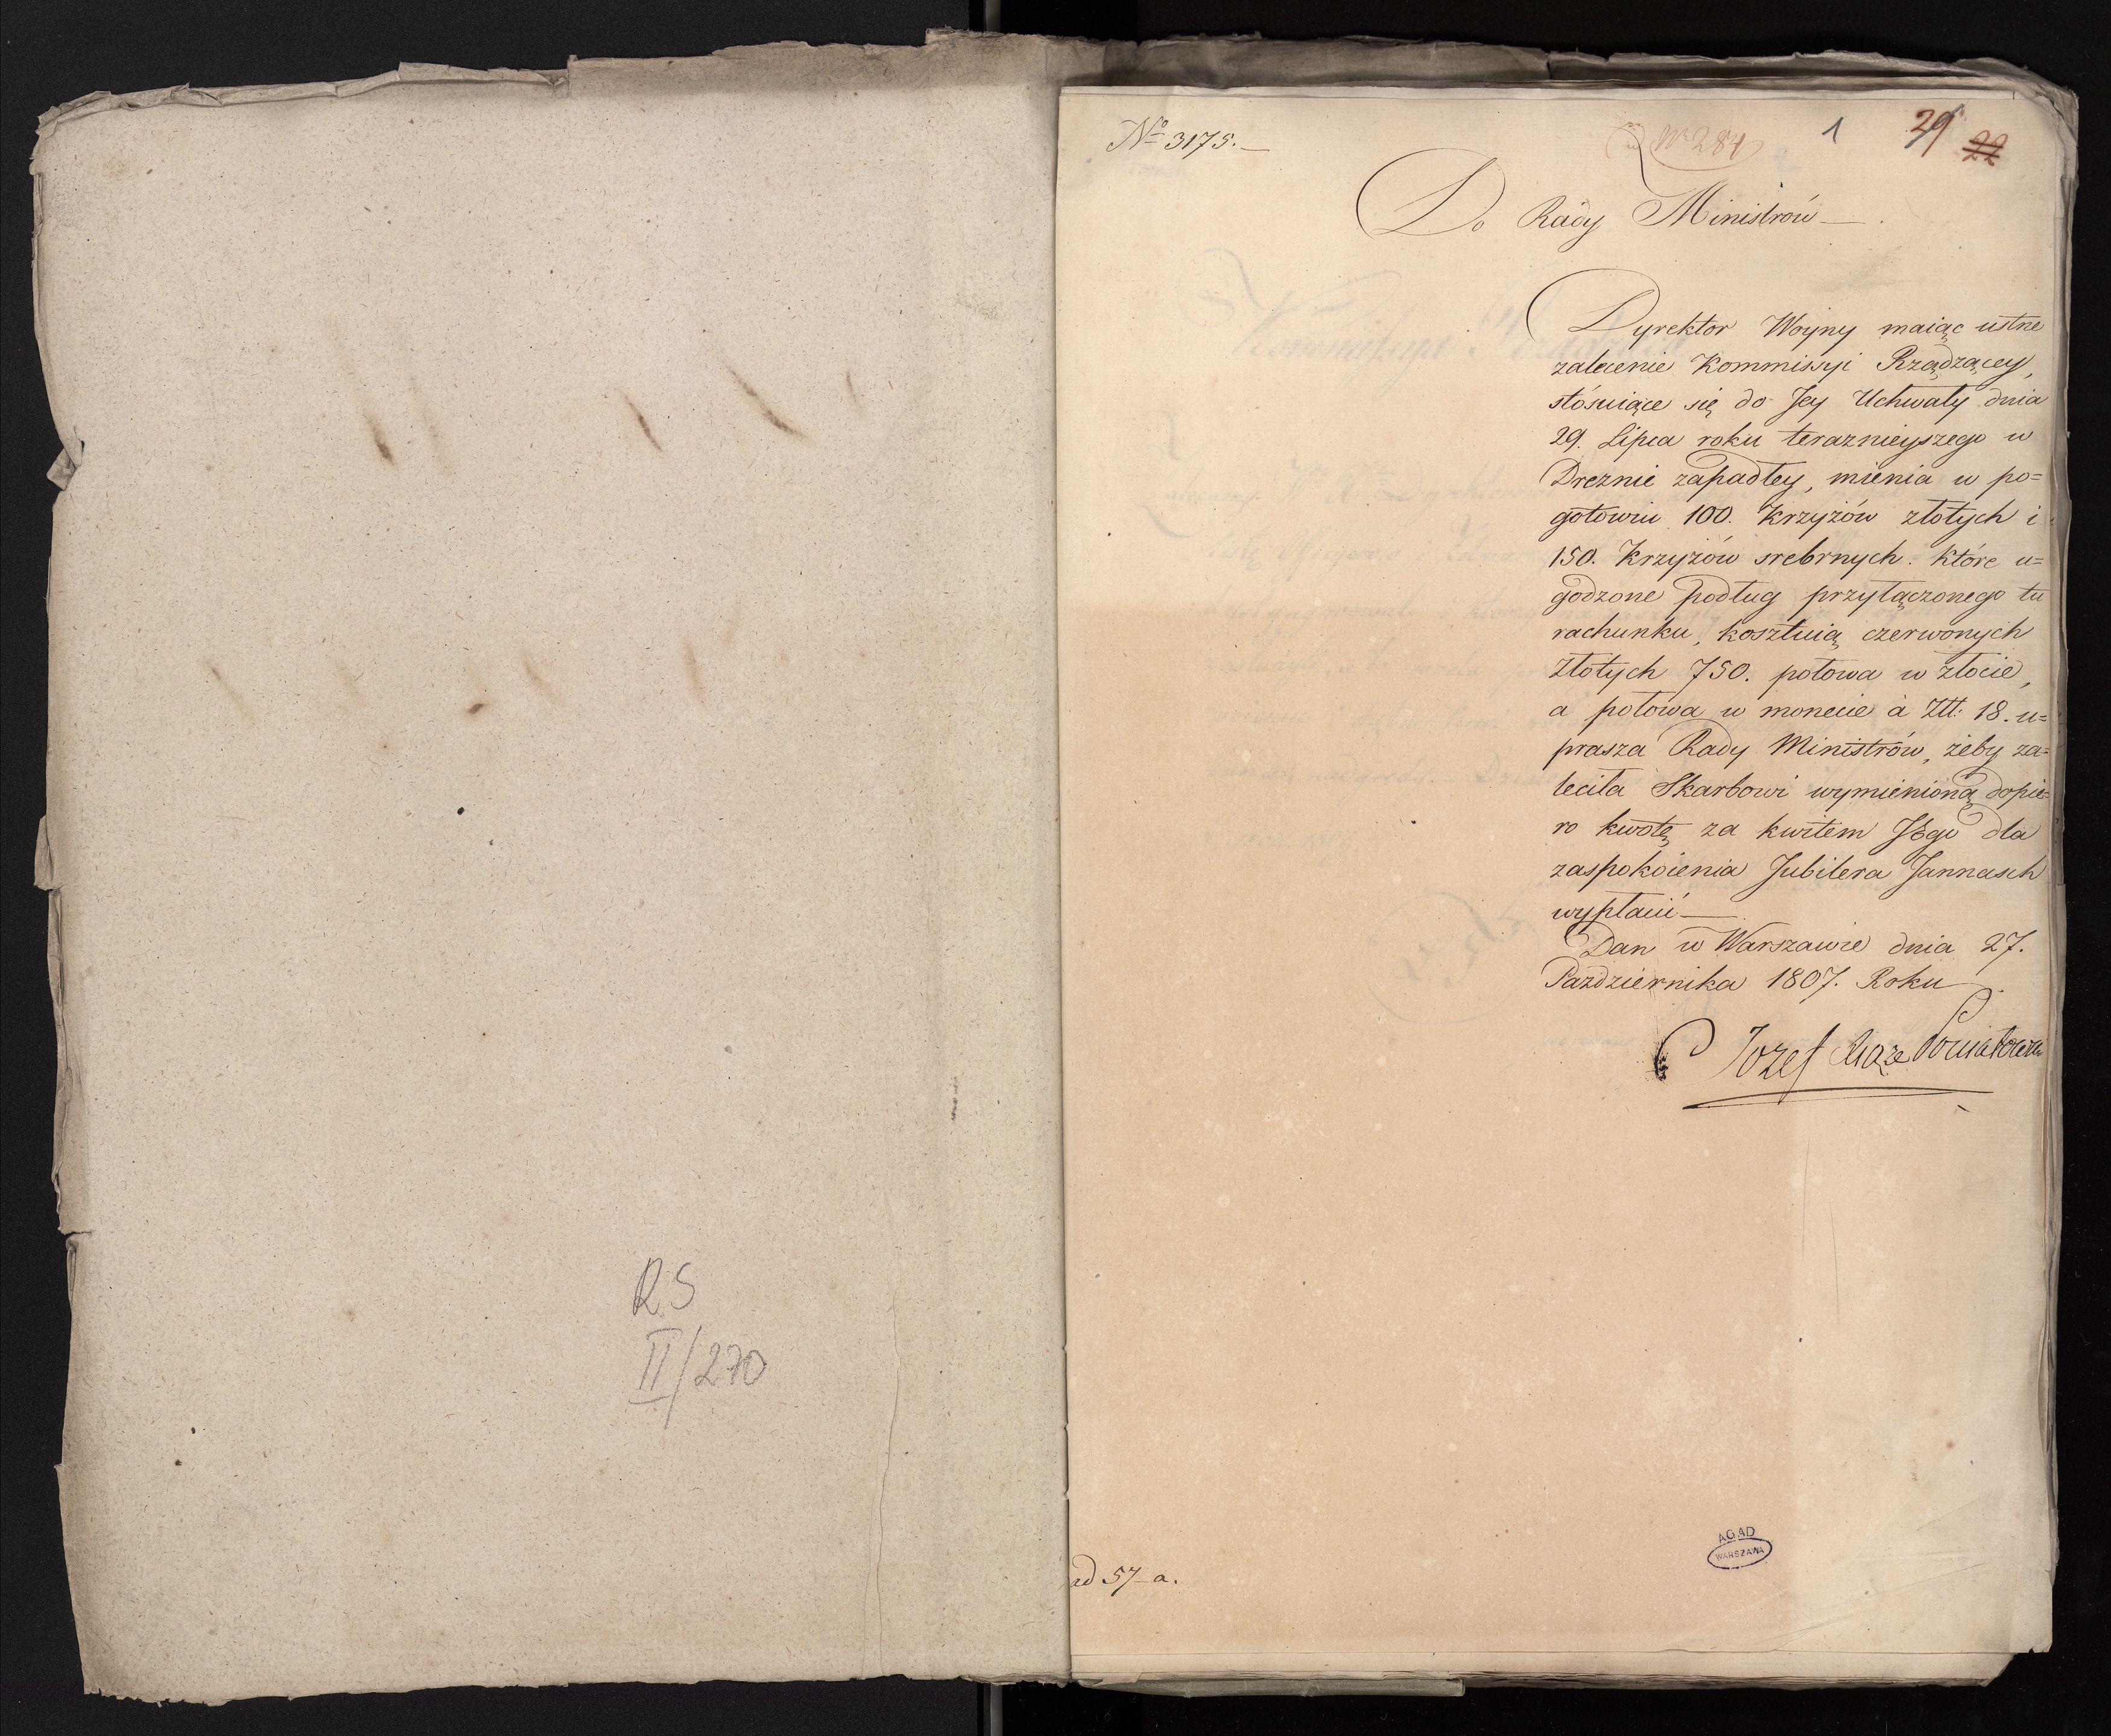 RS
II/270
No 3175.
No 284
1
29
22
Do Rady Ministrów
Dyrektor Woyny maiąc ustne
zalecenie Kommissyi Rządzącey,
stósuiące się do Jey Uchwały dnia
29. Lipca roku teraznieyszego w
Dreznie zapadłey, mienia w po=
gotowiu 100. Krzyżów złotych i
150. Krzyżów srebrnych. które u=
godzone podług przyłączonego tu
rachunku, kosztuią czerwonych
złotych 750. połowa w złocie,
a połowa w monecie à Złł: 18. u=
prasza Rady Ministrów, żeby za=
leciła Skarbowi wymienioną dopie=
ro kwotę za kwitem JEgo dla
zaspokoienia Jubilera Jannasch
wypłacić
Dan w Warszawie dnia 27.
Października 1807. Roku
Jozef Xiąże Poniatowski
AGAD
WARSZAWA
ad 57 a.